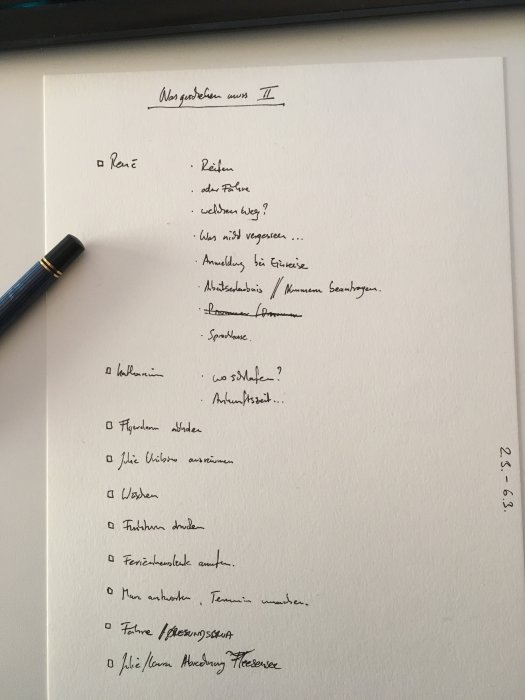 Was geschehen muss II
□ René · Reifen
· oder Fähre
· welchen Weg?
· Was nicht vergessen...
· Anmeldung bei Einreise
· Arbeitserlaubnis // Nummern beantragen.
· Sprachkurse.
□ Katharina · wo schlafen?
· Ankunftszeit...
□ abholen
□ Julie ausräumen
□ Waschen
□ drucken
□ anrufen.
□ antworten, Termin machen.
□ Fähre / ØRESUNDSBRON
□ Julie/ Abordnung Fleesensee
2.3. - 6.3.